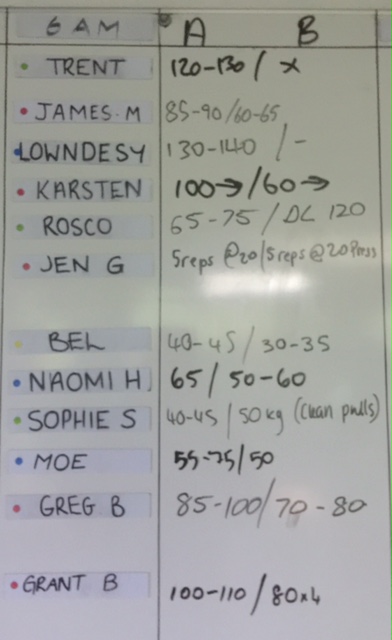 6 AM A B
TRENT 120-130 / x
JAMES.M 85-90/60-65
LOWNDESY 130-140 / -
KARSTEN 100→/60→
ROSCO 65-75 / DL 120
JEN G 5reps @20/5reps @20 Press
BEL 40-45 / 30-35
NAOMI H 65/ 50-60
SOPHIE S 40-45 / 50kg (Clean pulls)
MOE 55-75/50
GREG B 85-100/70-80
GRANT B 100-110 / 80x4